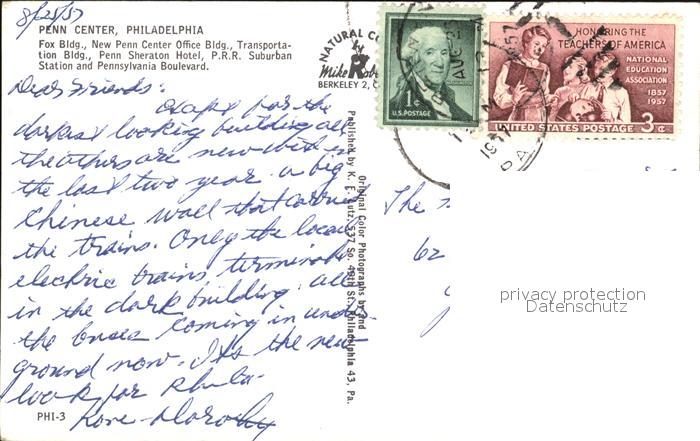 8/25/57
PENN CENTER, PHILADELPHIA
Fox Bldg., New Penn Center Office Bldg., Transporta-
tion Bldg., Penn Sheraton Hotel, P.R.R. Suburban
Station and Pennsylvania Boulevard.
Dear Friends:
for the
darkest looking building all
the others are new
the last two year. a big
Chinese wall that carried
the trains. Only the local
electric trains terminate
in the dark building. all
the coming in under
ground now. Its the new
look for Phila.
Love Dorothy
PHI-3
NATURAL CO
by
Mike Rob
BERKELEY 2, C
Original Color Photographs by and
Published by K. F. Lutz, 537 So. 49th St., Philadelphia 43, Pa.
1¢
U.S. POSTAGE
HONORING THE
TEACHERS OF AMERICA
NATIONAL
EDUCATION
ASSOCIATION
1857
1957
UNITED STATES POSTAGE 3¢
AUG
1957
PA
The
62
privacy protection
Datenschutz